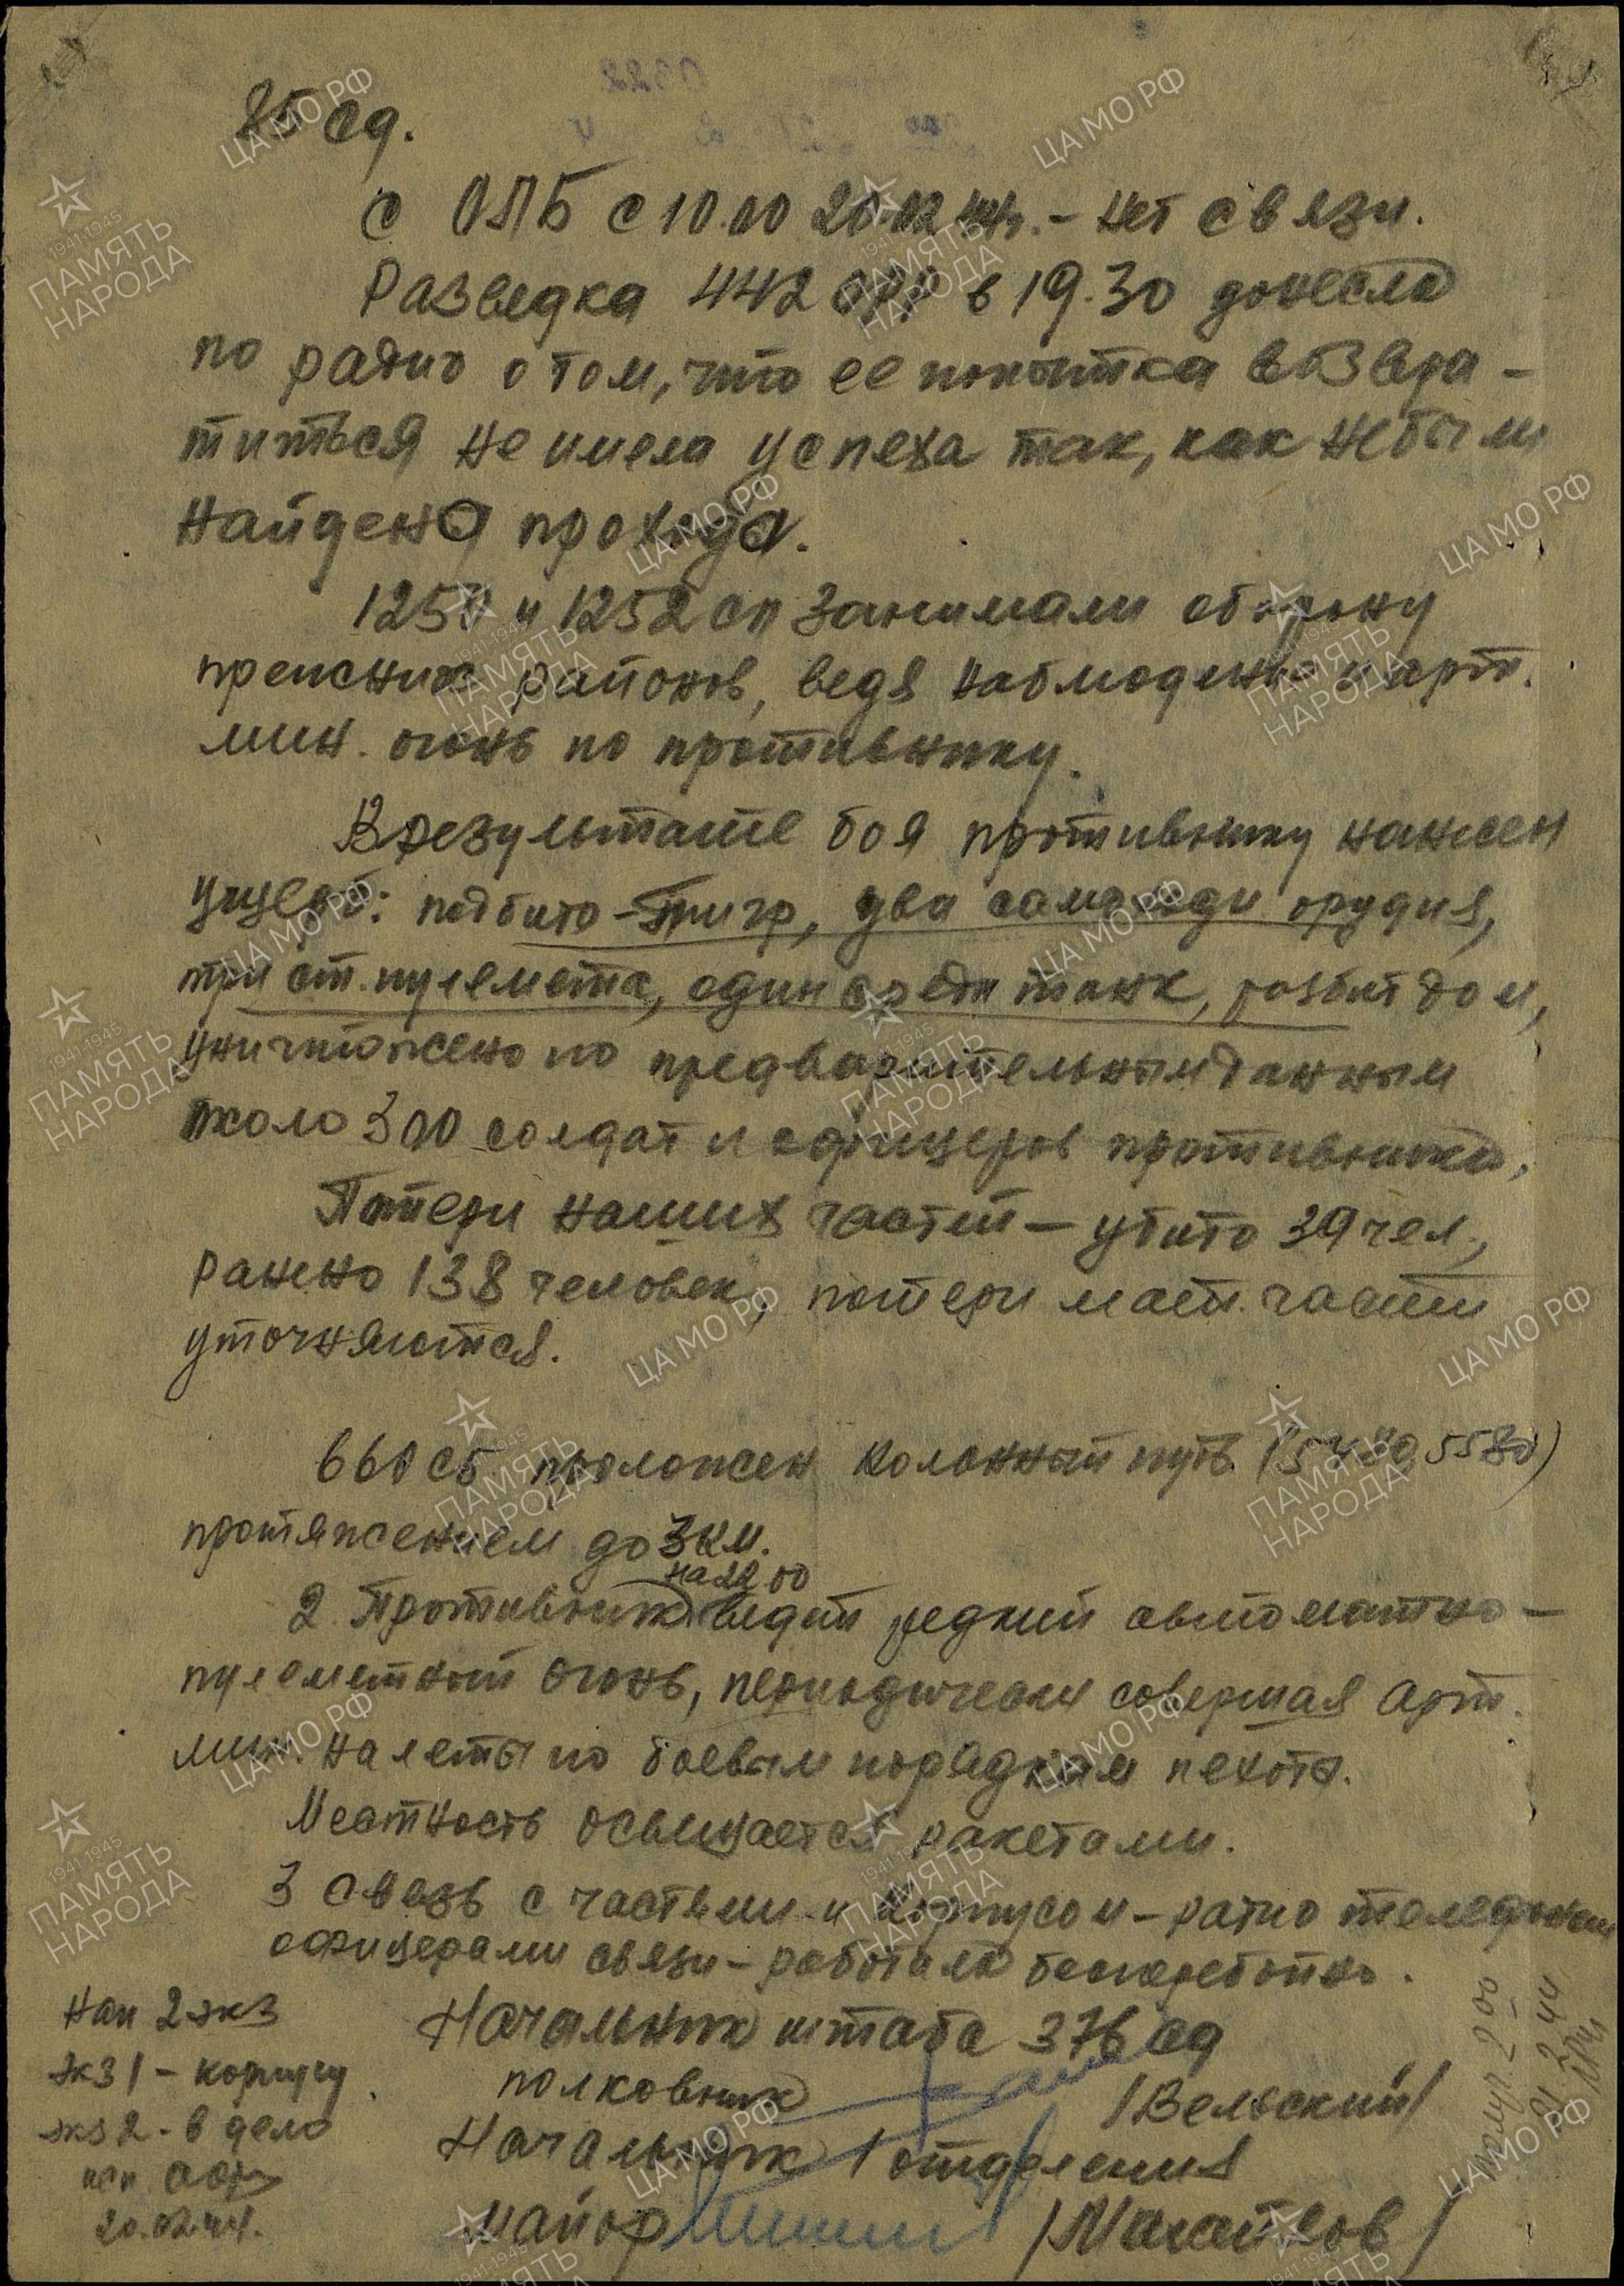 85 сд.
с ОЛБ с 10.00 20.02.44г. - нет связи.
Разведка 442 орр в 19.30 донесла
по радио о том, что ее попытка возвра-
титься не имела успеха так, как не были
найдена прохода.
1250 и 1252 сп занимали оборону
прежних районов, ведя наблюдение и арт.
мин. огонь по противнику.
В результате боя противнику нанесен
ущерб: подбито - Тигр, два самоходн орудия,
три ст. пулемета, один средн танк, разбит дом,
уничтожено по предварительным данным
около 300 солдат и офицеров противника.
Потери наших частей - убито 39 чел.,
ранено 138 человек, потери мат. части
уточняются.
660 сб проложен колонный путь
протяжением до 3 км.
на 22 00
2. Противник ведет редкий автоматно-
пулеметный огонь, периодически совершая арт.
мин. налеты по боевым порядкам пехоты.
Местность освещается ракетами.
3 Связь с частями и корпусом - ратио телефоном
офицерами связи - работала бесперебойно.
Начальник штаба 376 сд
полковник /Вельский/
Начальник 1 отделения
майор
нап 2 экз
экз 1 - корпусу
экз 2 - в дело
исп
20.02.44.
Получ. 2 00
21 2 44
ЦА МО РФ
1941-1945
ПАМЯТЬ
НАРОДА